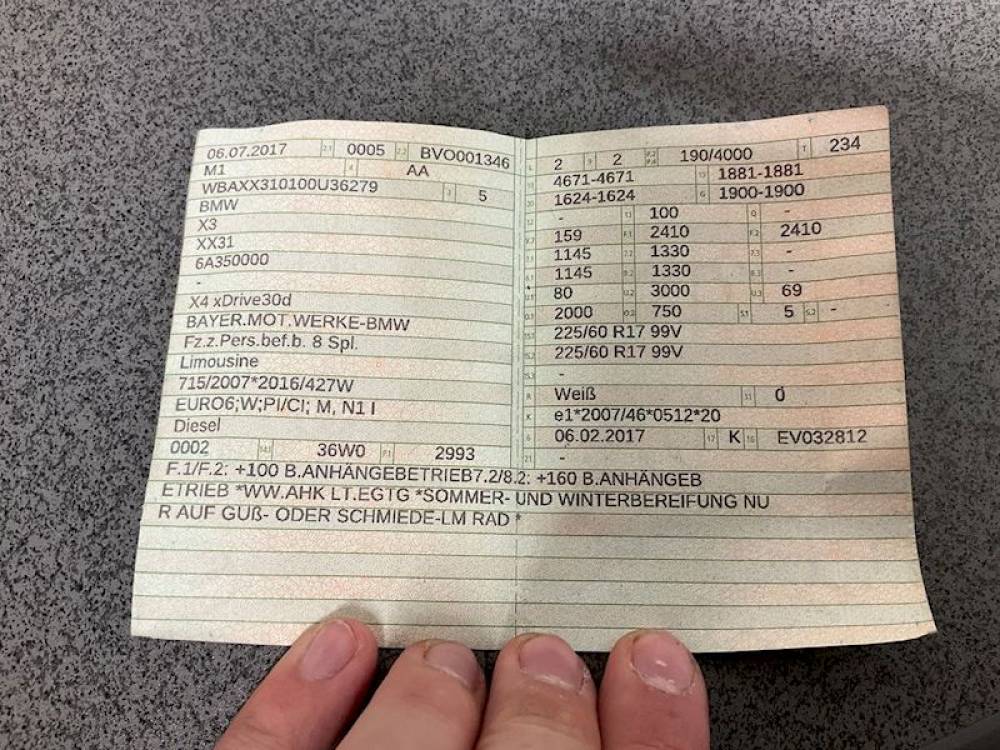 06.07.2017 2.1 0005 2.2 BVO001346
M1 4 AA
WBAXX310100U36279 3 5
BMW
X3
XX31
6A350000
-
X4 xDrive30d
BAYER.MOT.WERKE-BMW
Fz.z.Pers.bef.b. 8 Spl.
Limousine
715/2007*2016/427W
EURO6;W;PI/CI; M, N1 I
Diesel
0002 14.1 36W0 P.1 2993
L 2 9 2 P.2 P.4 190/4000 T 234
18 4671-4671 19 1881-1881
20 1624-1624 G 1900-1900
12 - 13 100 Q -
V.7 159 F.1 2410 F.2 2410
7.1 1145 7.2 1330 7.3 -
8.1 1145 8.2 1330 8.3 -
U.1 80 U.2 3000 U.3 69
O.1 2000 O.2 750 S.1 5 S.2 -
15.1 225/60 R17 99V
15.2 225/60 R17 99V
15.3 -
R Weiß 11 0
K e1*2007/46*0512*20
6 06.02.2017 17 K 16 EV032812
21 -
F.1/F.2: +100 B.ANHÄNGEBETRIEB7.2/8.2: +160 B.ANHÄNGEB
ETRIEB *WW.AHK LT.EGTG *SOMMER- UND WINTERBEREIFUNG NU
R AUF GUß- ODER SCHMIEDE-LM RAD *